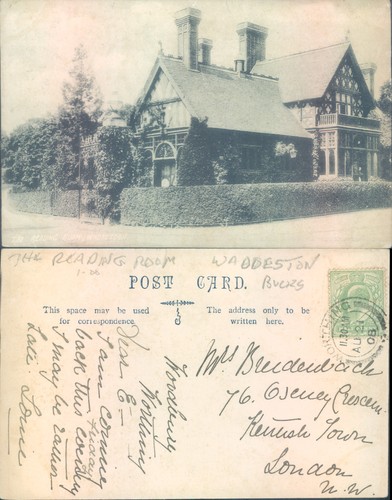 THE READING ROOM WADDESTON
BUCKS
1-00
POST CARD.
This space may be used
for correspondence.
The address only to be
written here.
AU 21
08
Mrs Breidenbach
76. Oseney Crescen
Kentish Town
London
N.W
Woodbury
Dear E—
I am coming
back this Friday
I may be earlier
Late